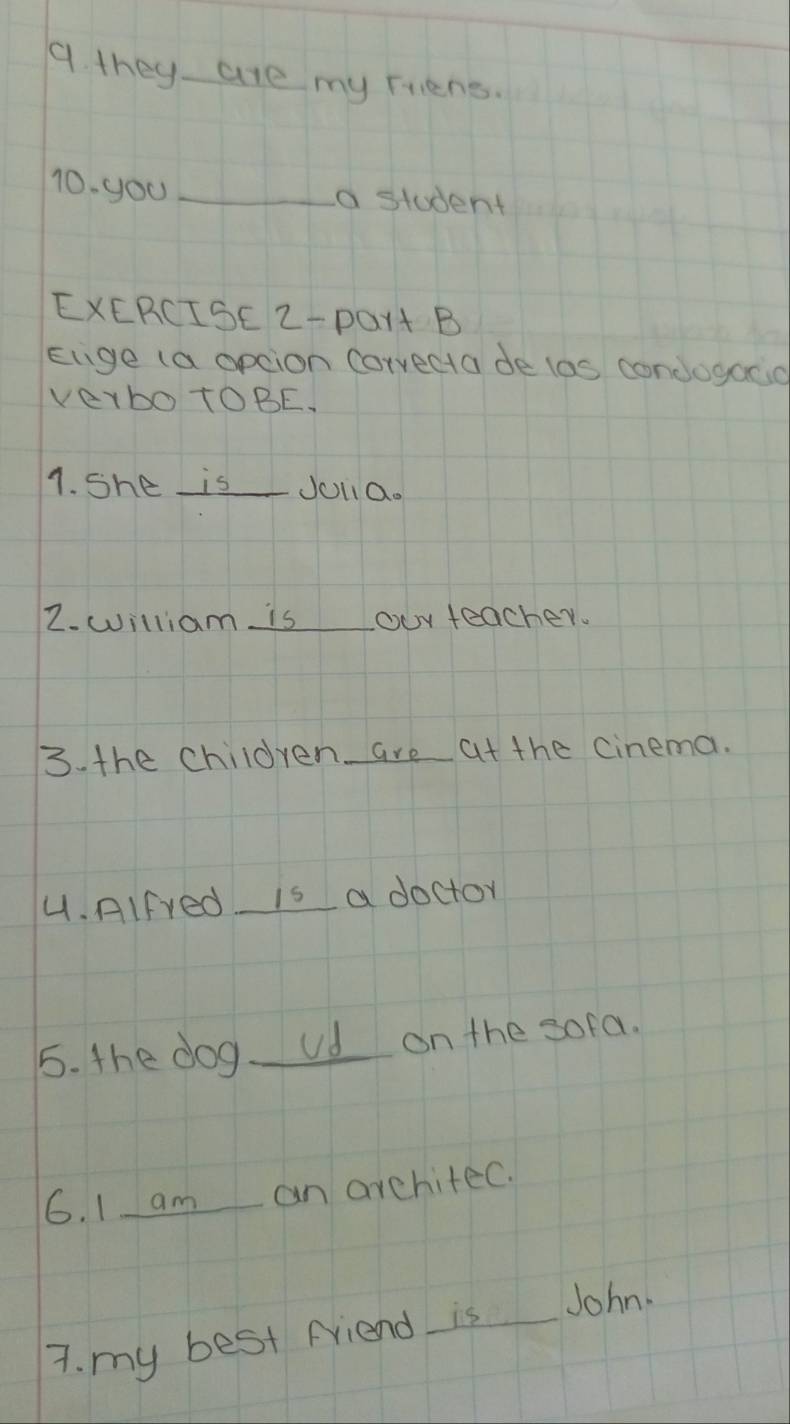 9. they are my friens.
10. you ______ a student
EXERCISE 2 - part B
Elige la opcion correcta de las condugacio
verbo TO BE.
1. She is Julia.
2. william is our teacher.
3. the children are at the cinema.
4. Alfred is a doctor
5. the dog on the sofa.
6. I am an architec.
7. my best friend is John.